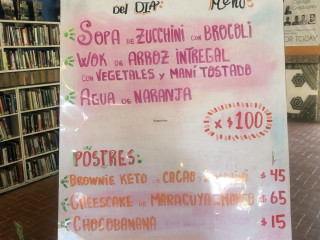 DEL DIA: MENÚ
SOPA DE ZUCCHINI CON BROCOLI
WOK DE ARROZ INTREGAL
CON VEGETALES Y MANÍ TOSTADO
AGUA DE NARANJA
x $100
POSTRES:
BROWNIE KETO DE CACAO $45
CHEESCAKE DE MARACUYA MANGO $65
CHOCOBANANA $15